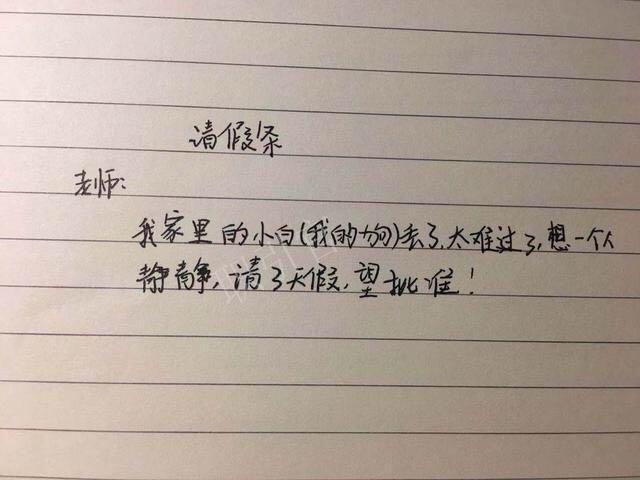 请假条
老师:
我家里的小白(我的狗)丢了,太难过了,想一个人
静静,请3天假,望批准!